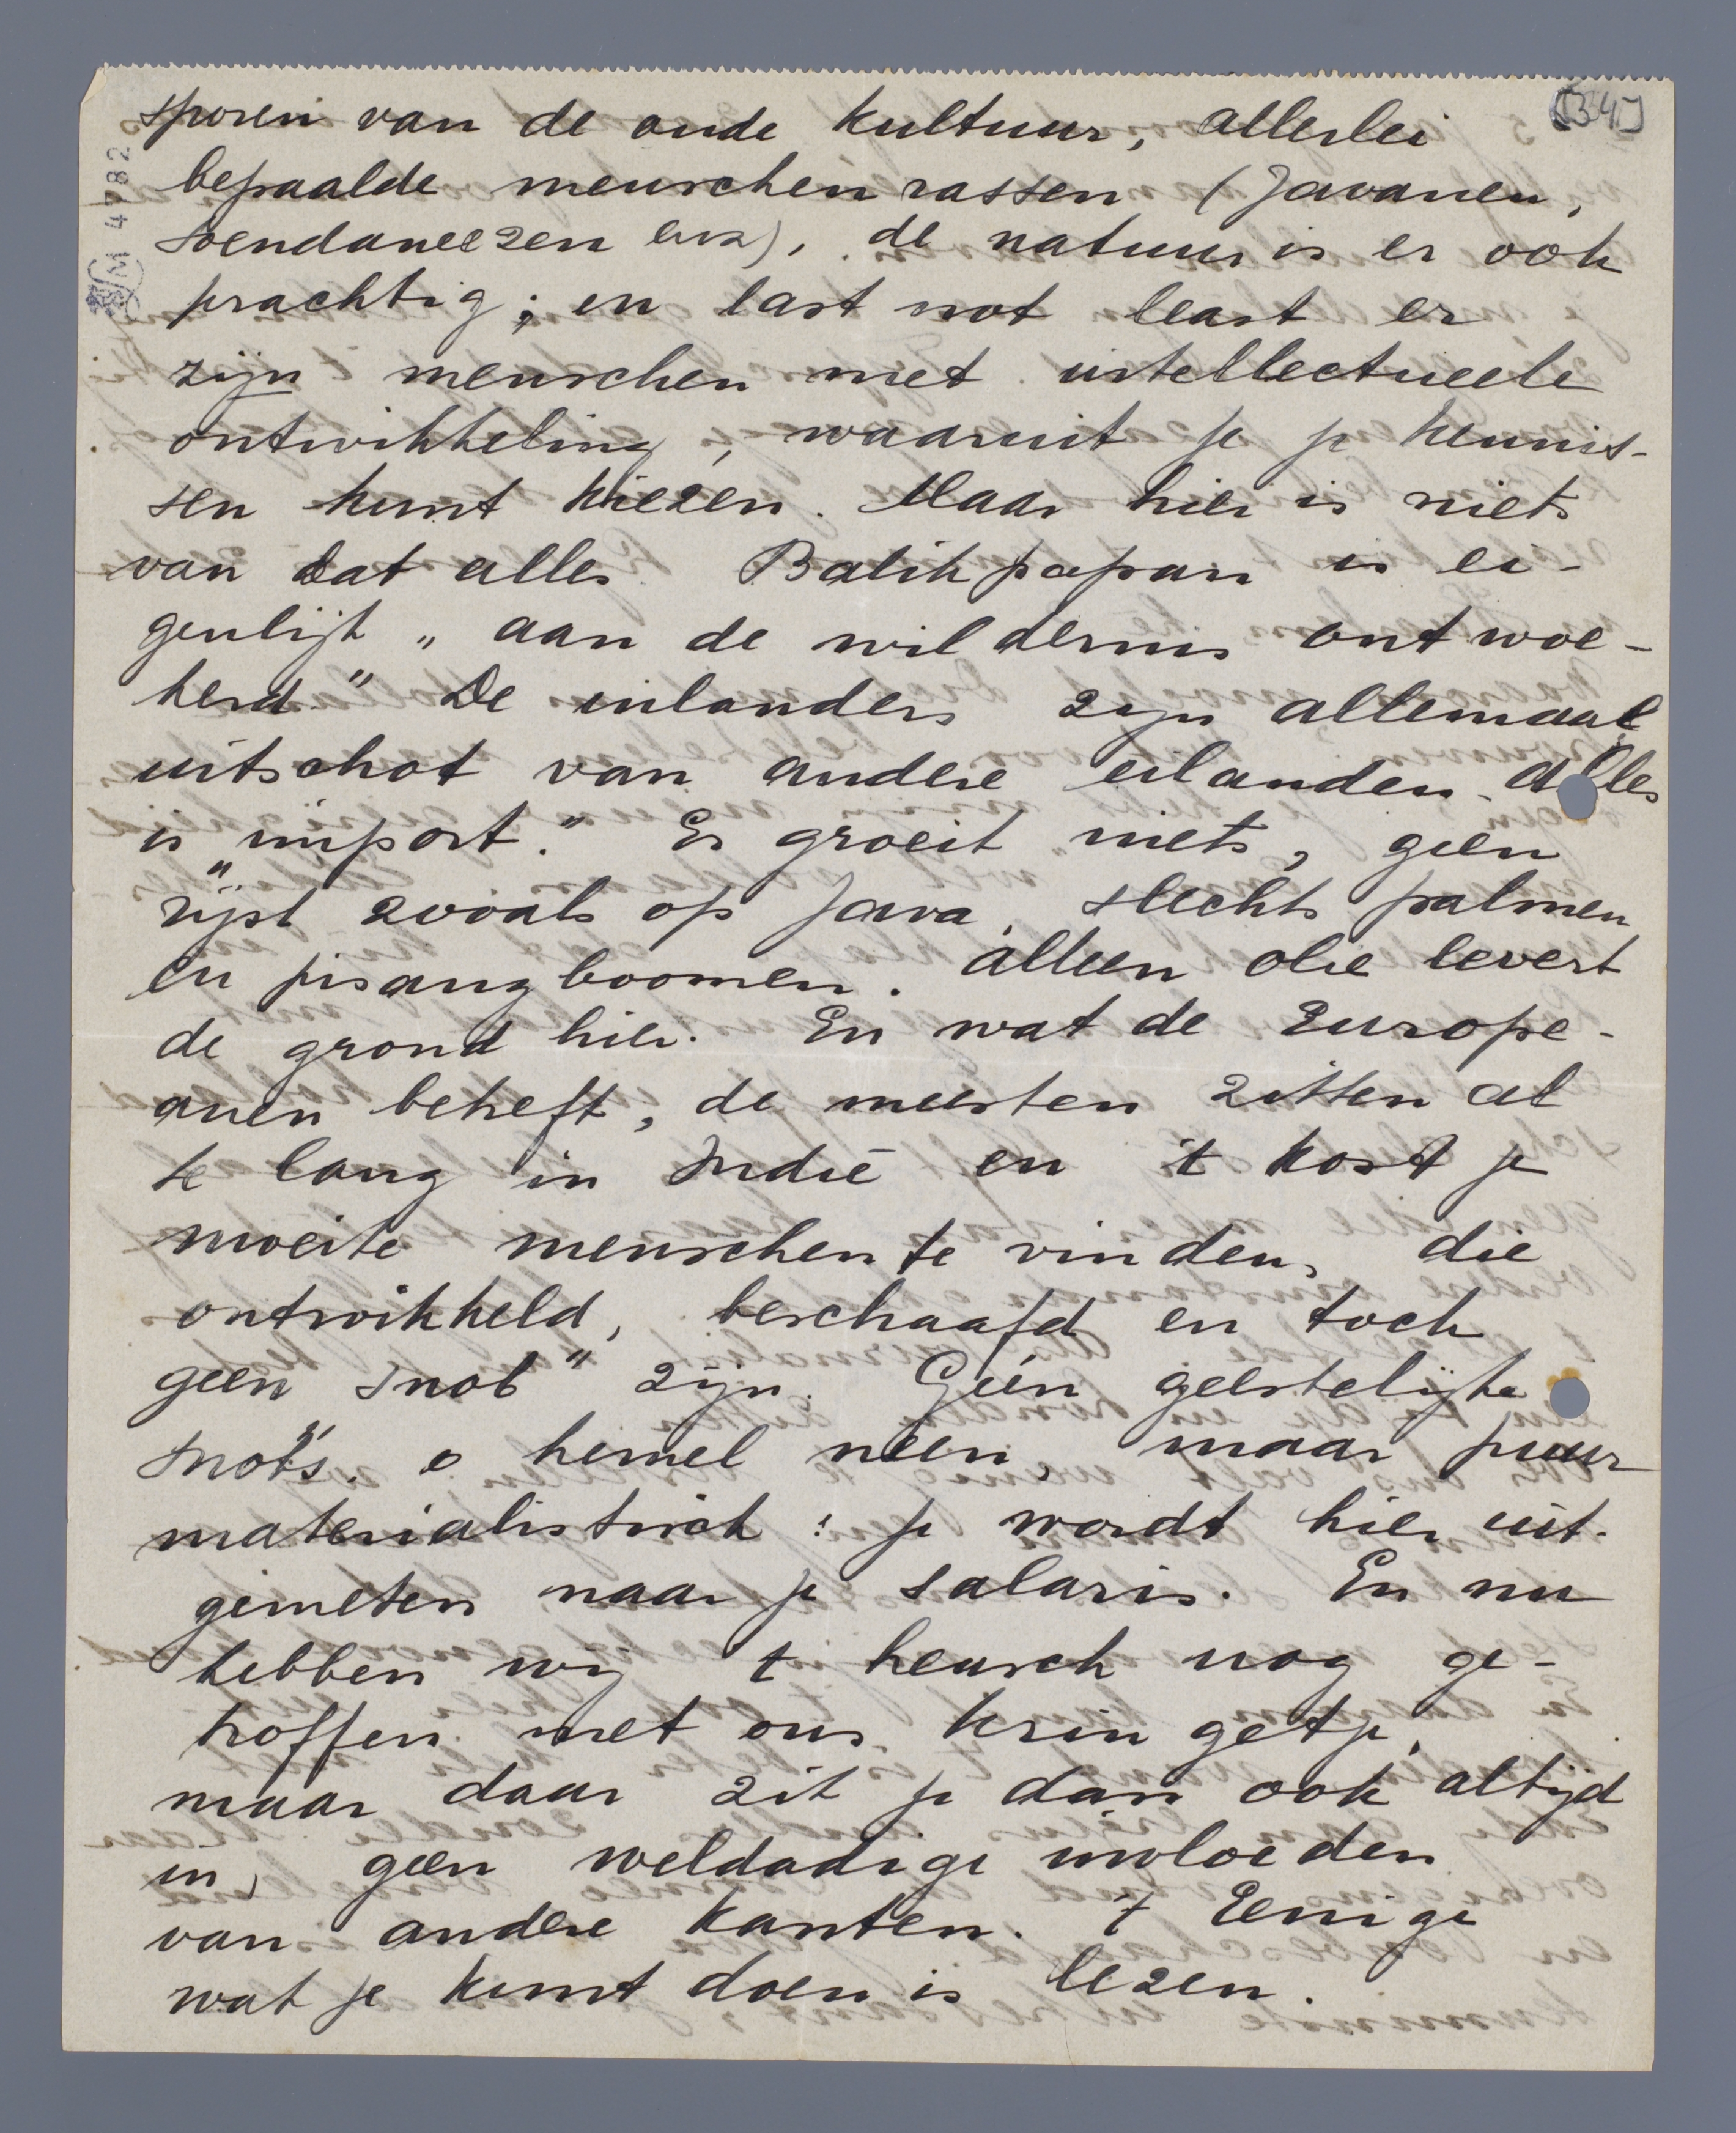 [34]
M 4782
sporen van de oude kultuur, allerlei
bepaalde menschenrassen (Javanen,
Soendaneezen enz), de natuur is er ook
prachtig; en last not least er
zijn menschen met intellectueele
ontwikkeling, waaruit je je kennis-
sen kunt kiezen. Maar hier is niets
van dat alles. Balikpapan is ei-
genlijk „aan de wildernis ontwoe-
kerd." De inlanders zijn allemaal
uitschot van andere eilanden. alles
is „import." Er groeit niets, geen
rijst zooals op Java, slechts palmen
en pisangboomen. Alleen olie levert
de grond hier. En wat de Europe-
anen betreft, de meesten zitten al
te lang in Indië en 't kost je
moeite menschen te vinden, die
ontwikkeld, beschaafd en toch
geen „snob" zijn. Géén geestelijke
snobs. o hemel neen, maar puur
materialistisch: je wordt hier uit-
gemeten naar je salaris. En nu
hebben wij 't heusch nog ge-
troffen met ons kringetje,
maar daar zit je dan ook altijd
in, geen weldadige invloeden
van andere kanten. 't Eenige
wat je kunt doen is lezen.